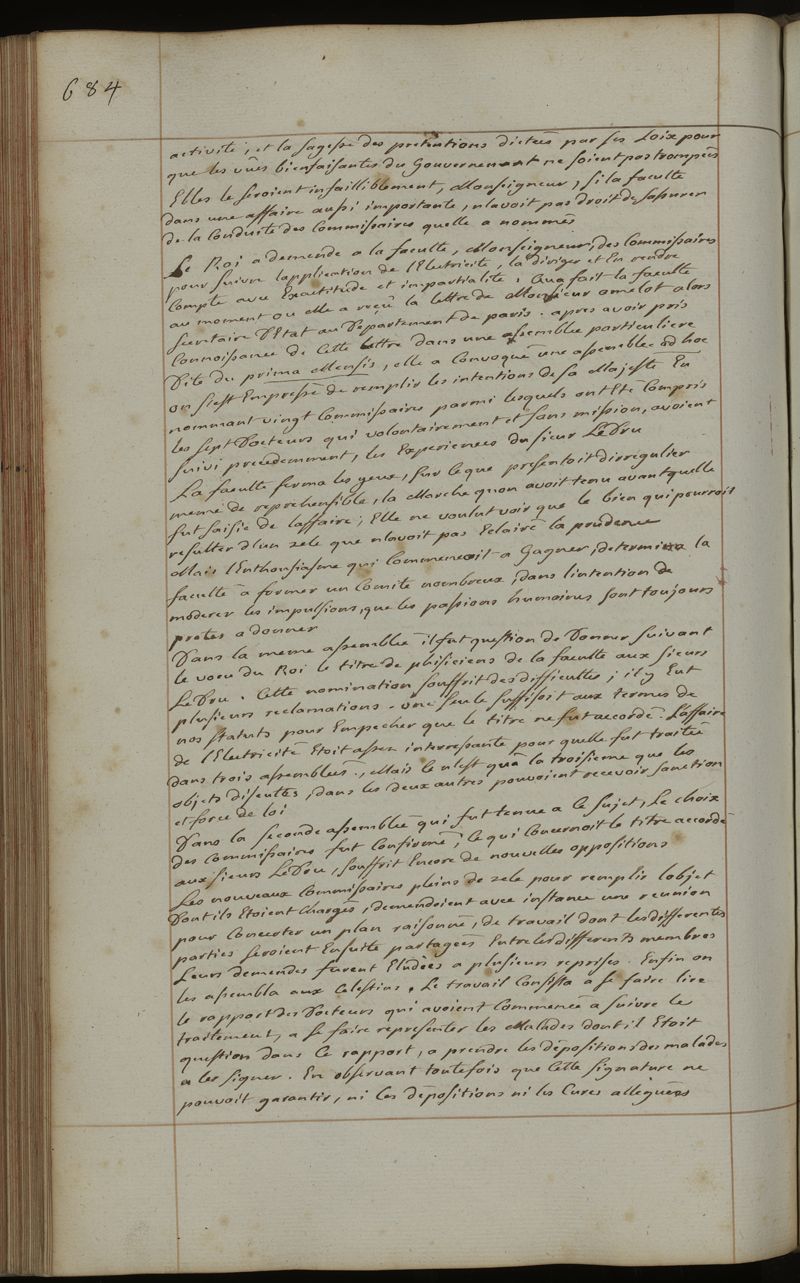 684
activité, et la sagesse des precautions dictées par ses Loix pour
que les vûes bienfaisantes du Gouvernement ne soient pas trompées
Elles le seroient infailliblement, Monseigneur, si la faculté
dans une affaire aussi importante, n'avoit pas droit de sassurer
de la Conduite des Commissaires quelle a nommés
Le Roi a demandé a la faculté, Monseigneur, des Commissaires
pour suivre lapplication de lElectricité, la diriger et En rendre
Compte avec Exactitude et impartialité, Qua fait la faculté
au moment ou elle a reçû la lettre de Monsieur amelot alors
secretaire DEtat au Departement de paris. apres avoir pris
Connoissance de Cette lettre dans une assemblée particuliere
Dite du prima Mensis, elle a Convoqué une assemblée ad hoc
on sest Empressé de remplir les intentions de sa Majesté En
nommant vingt Commissaires parmi lesquels ont Eté Compris
les sept Docteurs qui volontairement et sans mission, avoient
suivi precedemment, les Experiences du sieur LeDru
La faculté ferma les yeux, sur ce que presentoit dirregulier
meme de reprehensible, la Marche quon avoit tenu avant quelle
fut saisie de laffaire; Elle ne voulut voir que le bien qui pourroit
resulter d'un zele que n'avoit pas Eclairé la prudence
Mais lEnthousiasme qui Commencoit a Gagner, determina la
faculté a former un Comité nombreux, dans lintention de
moderer les impulsions, que les passions humaines sont toujours
pretes a donner
Dans la meme assemblée il fut question de Donner suivant
le voeu du Roi le titre de phisiciens de la faculté aux sieurs
LeDru. Cette nomination souffrit des difficultés; il y Eut
plusieurs reclamations. une seule suffisoit aux termes de
nos statuts pour Empecher que le titre ne fut accordé. Laffaire
de lElectricité Etoit assez interressante pour quelle fut traitée
dans trois assemblées, Mais ce nest quà la troisieme que les
objets discutés, dans les deux autres pouvoient recevoir sanction
et force de loi
Dans la seconde assemblée qui fut tenue a ce sujet, Le choix
des Commissaires fut Confirmé; Ce qui Concernoit le titre accordé
aux sieurs LeDru, souffrit Encore de nouvelles oppositions
Les nouveaux Commissaires pleins de zele pour remplir lobjet
Dont ils Etoient Chargés, demandoient avec instance une reunion
pour Concerter un plan raisonné, de travail dont les differentes
parties seroient Ensuite partagées Entre les differents membres
Leurs demandes furent Eludées a plusieurs reprises. Enfin on
les assembla aux Celestins. Le travail Consista a se faire lire
le rapport des Docteurs qui avoient Commencé a suivre le
traitement, a se faire representer les Malades dont il Etoit
question dans Ce rapport, a prendre les depositions des malades
a les signer. En observant toutefois que Cette signature ne
pouvoit garantir, ni les depositions ni les Cures alleguées